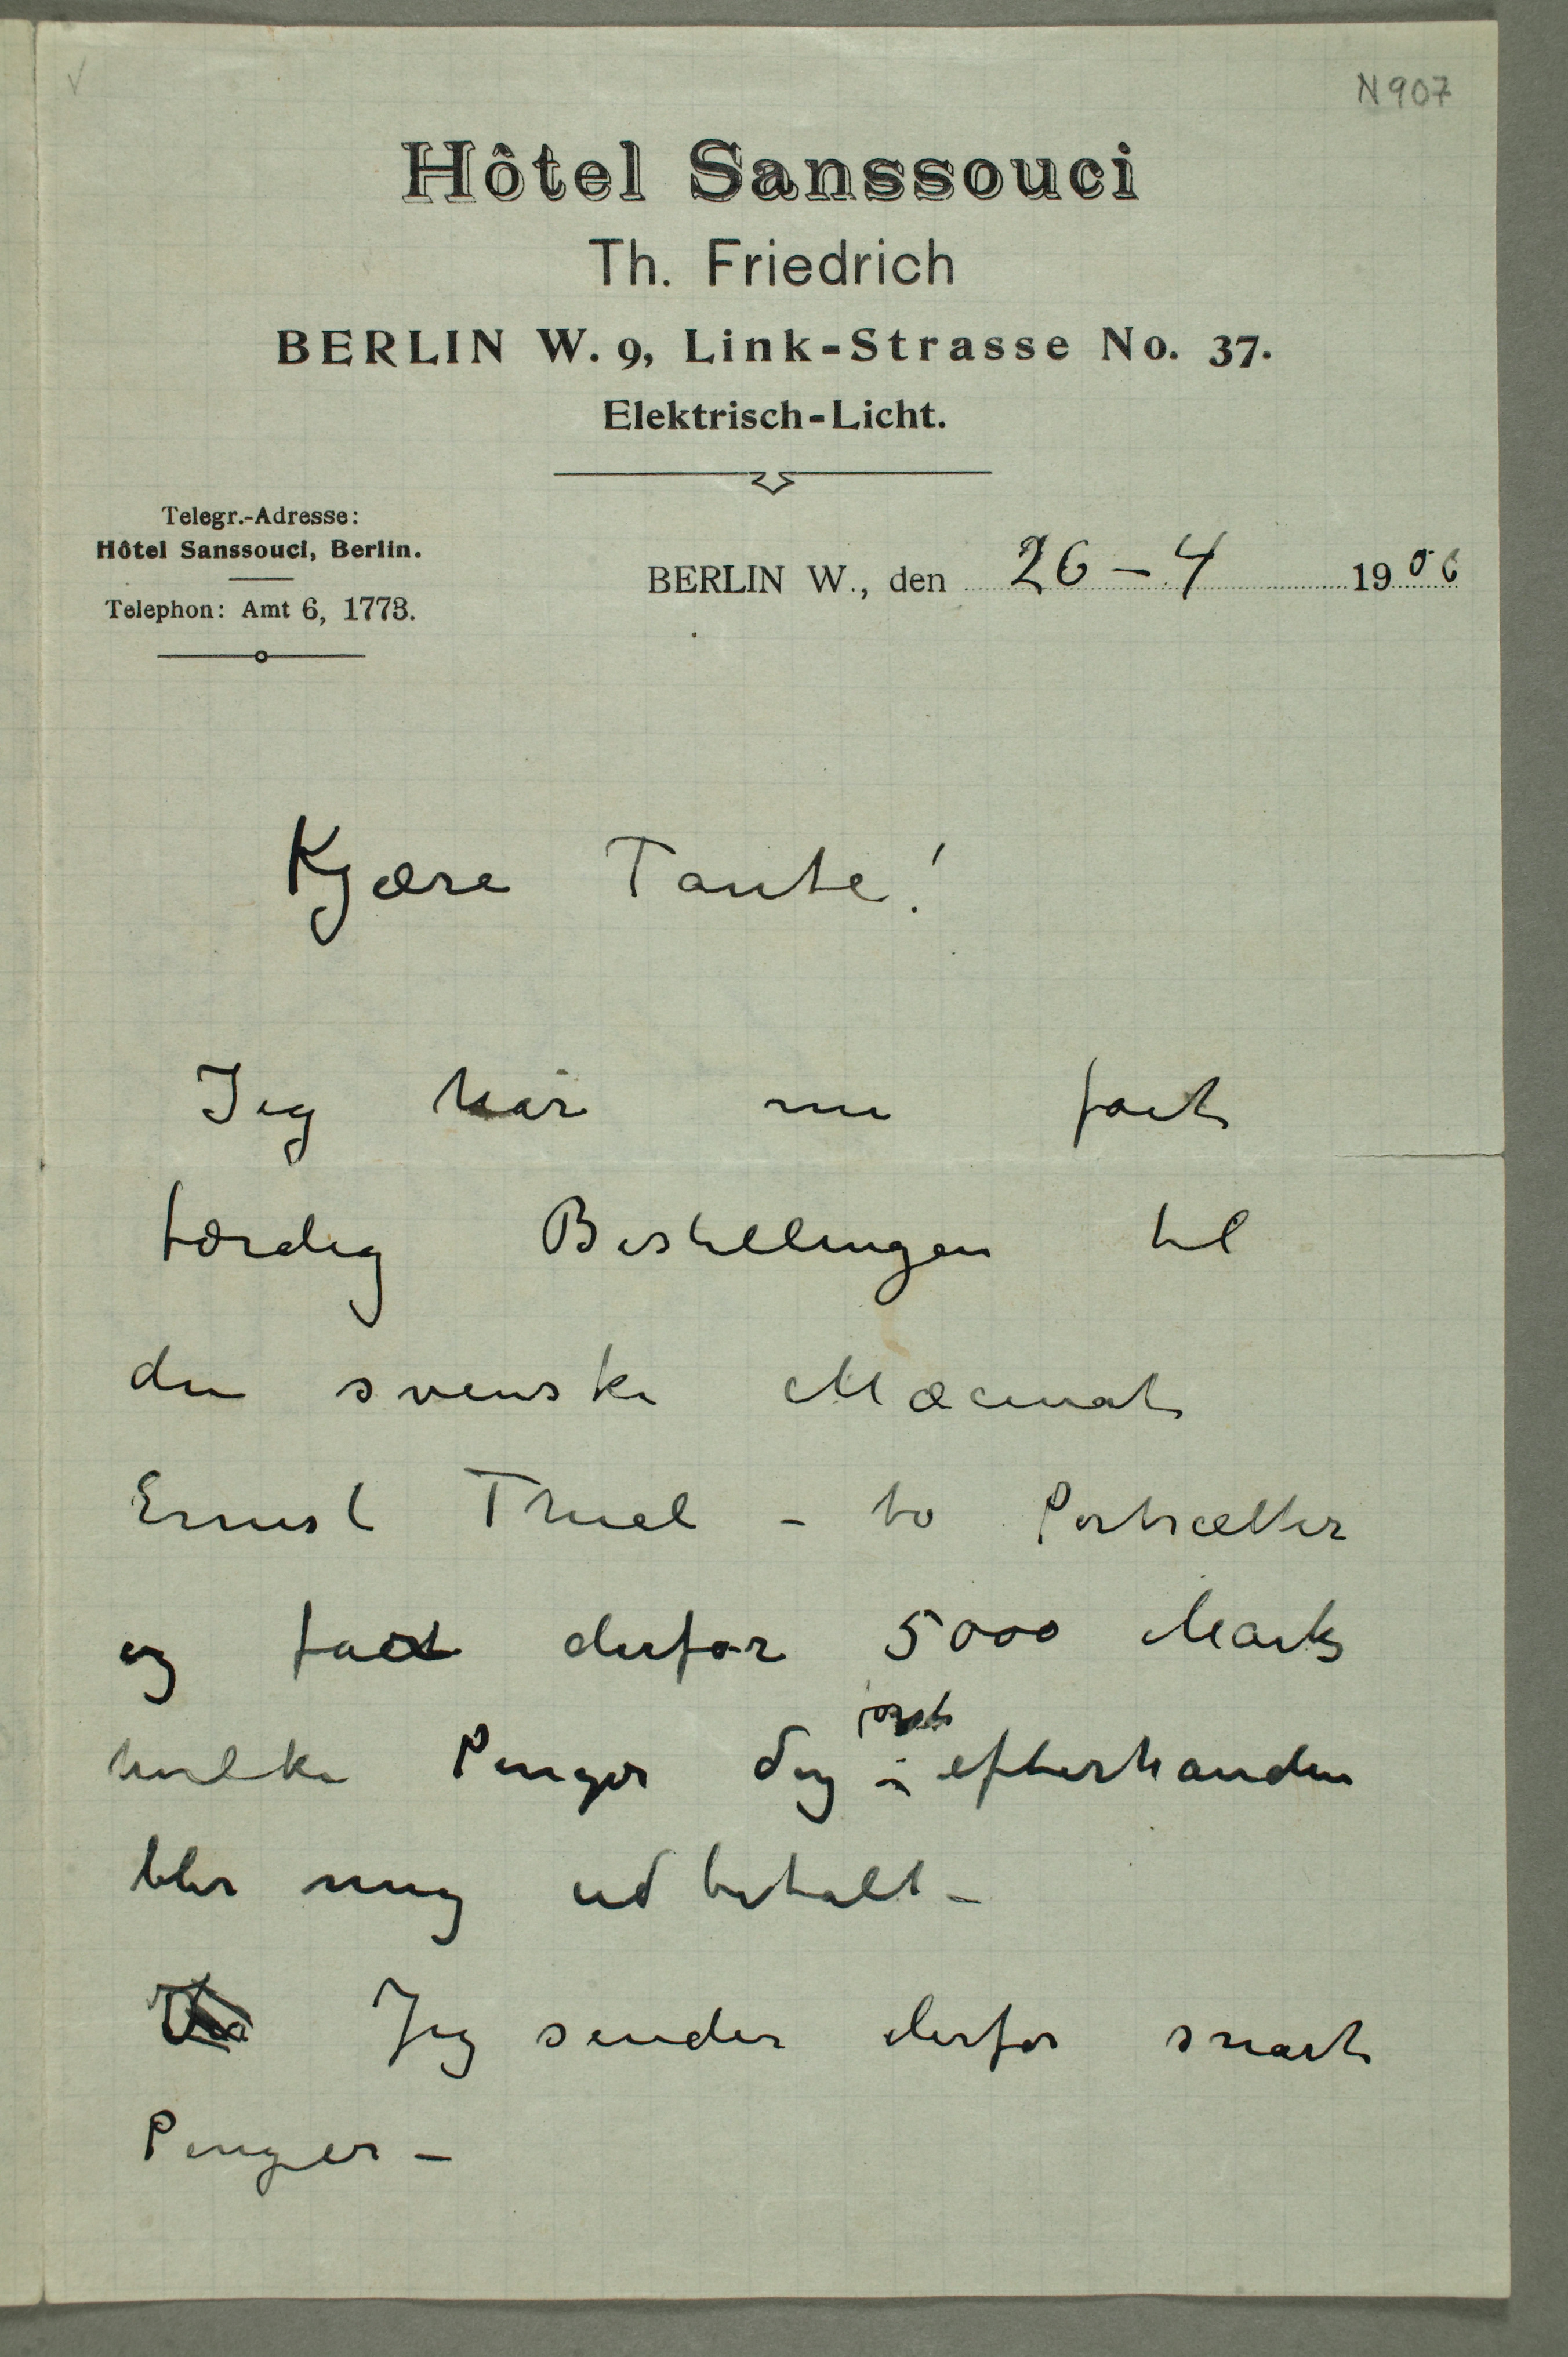 N 907
Hôtel Sanssouci
Th. Friedrich
BERLIN W. 9, Link-Strasse No. 37.
Elektrisch-Licht.
Telegr.-Adresse:
Hôtel Sanssouci, Berlin.
Telephon: Amt 6, 1773.
BERLIN W., den 26 – 4 1906
Kjære Tante!
Jeg har nu faet
færdig Bestillingen til
den svenske Mæcenat
Ernest Thiel – to Portrætter
og faet derfor 5000 Mark
hvilke Penger dog efterhanden
blir mig udbetalt –
Jeg sender derfor snart
Penger –